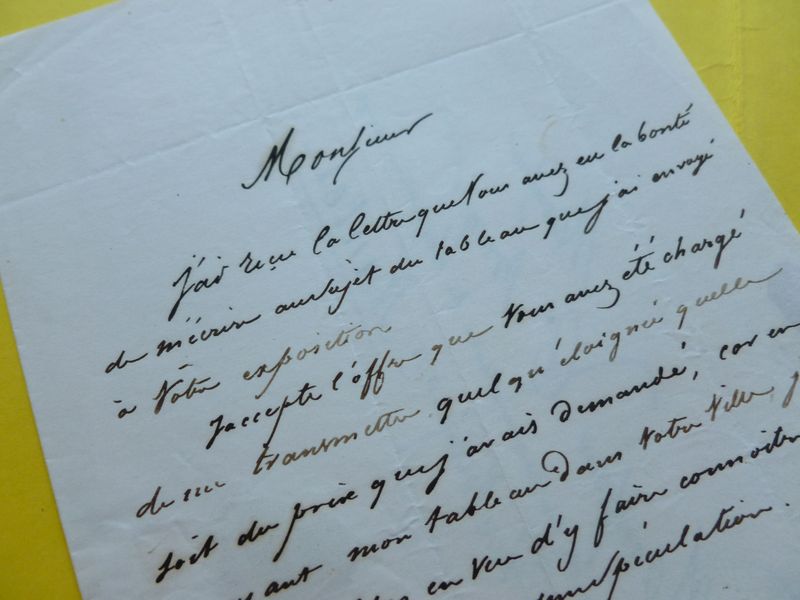 Monsieur
J'ai reçu la lettre que Vous avez eu la bonté
de m'écrire au sujet du tableau que j'ai envoyé
à Votre exposition
J'accepte l'offre que Vous avez été chargé
de me transmettre quelqu'éloignée quelle
soit du prix que j'avais demandé, car en
mon tableau dans Votre Ville, j
en vue d'y faire connoitre
Spéculation.